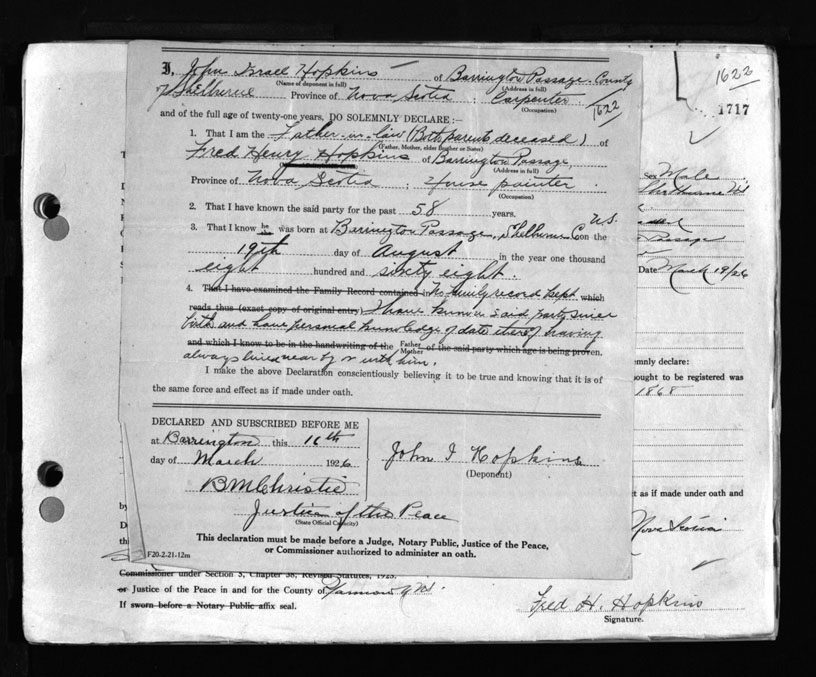 I, John Israel Hopkins of Barrington Passage. County
(Name of deponent in full) (Address in full)
of Shelburne Province of Nova Scotia : Carpenter
(Occupation)
and of the full age of twenty-one years, DO SOLEMNLY DECLARE:—
1. That I am the Father-in-law (Both parents deceased) of
(Father, Mother, elder Brother or Sister)
Fred Henry Hopkins of Barrington Passage,
(Address in full)
Province of Nova Scotia ; House painter
(Occupation)
2. That I have known the said party for the past 58 years.
3. That I know he was born at Barrington Passage, Shelburne Co N.S. on the
19th day of August in the year one thousand
eight hundred and sixty eight.
4. That I have examined the Family Record contained in No family record kept which
reads thus (exact copy of original entry) I have known said party since
birth and have personal knowledge of date thereof having
and which I know to be in the handwriting of the Father Mother of the said party which age is being proven.
always lived near by or with him.
I make the above Declaration conscientiously believing it to be true and knowing that it is of
the same force and effect as if made under oath.
DECLARED AND SUBSCRIBED BEFORE ME
at Barrington this 16th
day of March 1926
B M Christie
Justice of the Peace
(State Official Capacity)
John I Hopkins
(Deponent)
This declaration must be made before a Judge, Notary Public, Justice of the Peace,
or Commissioner authorized to administer an oath.
F20-2-21-12m
1622
1622
1717
Sex Male
Passage
Date March 19/26
emnly declare:
ought to be registered was
1868
t as if made under oath and
Nova Scotia
Commissioner under Section 3, Chapter 38, Revised Statutes, 1923.
or Justice of the Peace in and for the County of Yarmouth N.S.
If sworn before a Notary Public affix seal.
Fred H. Hopkins
Signature.